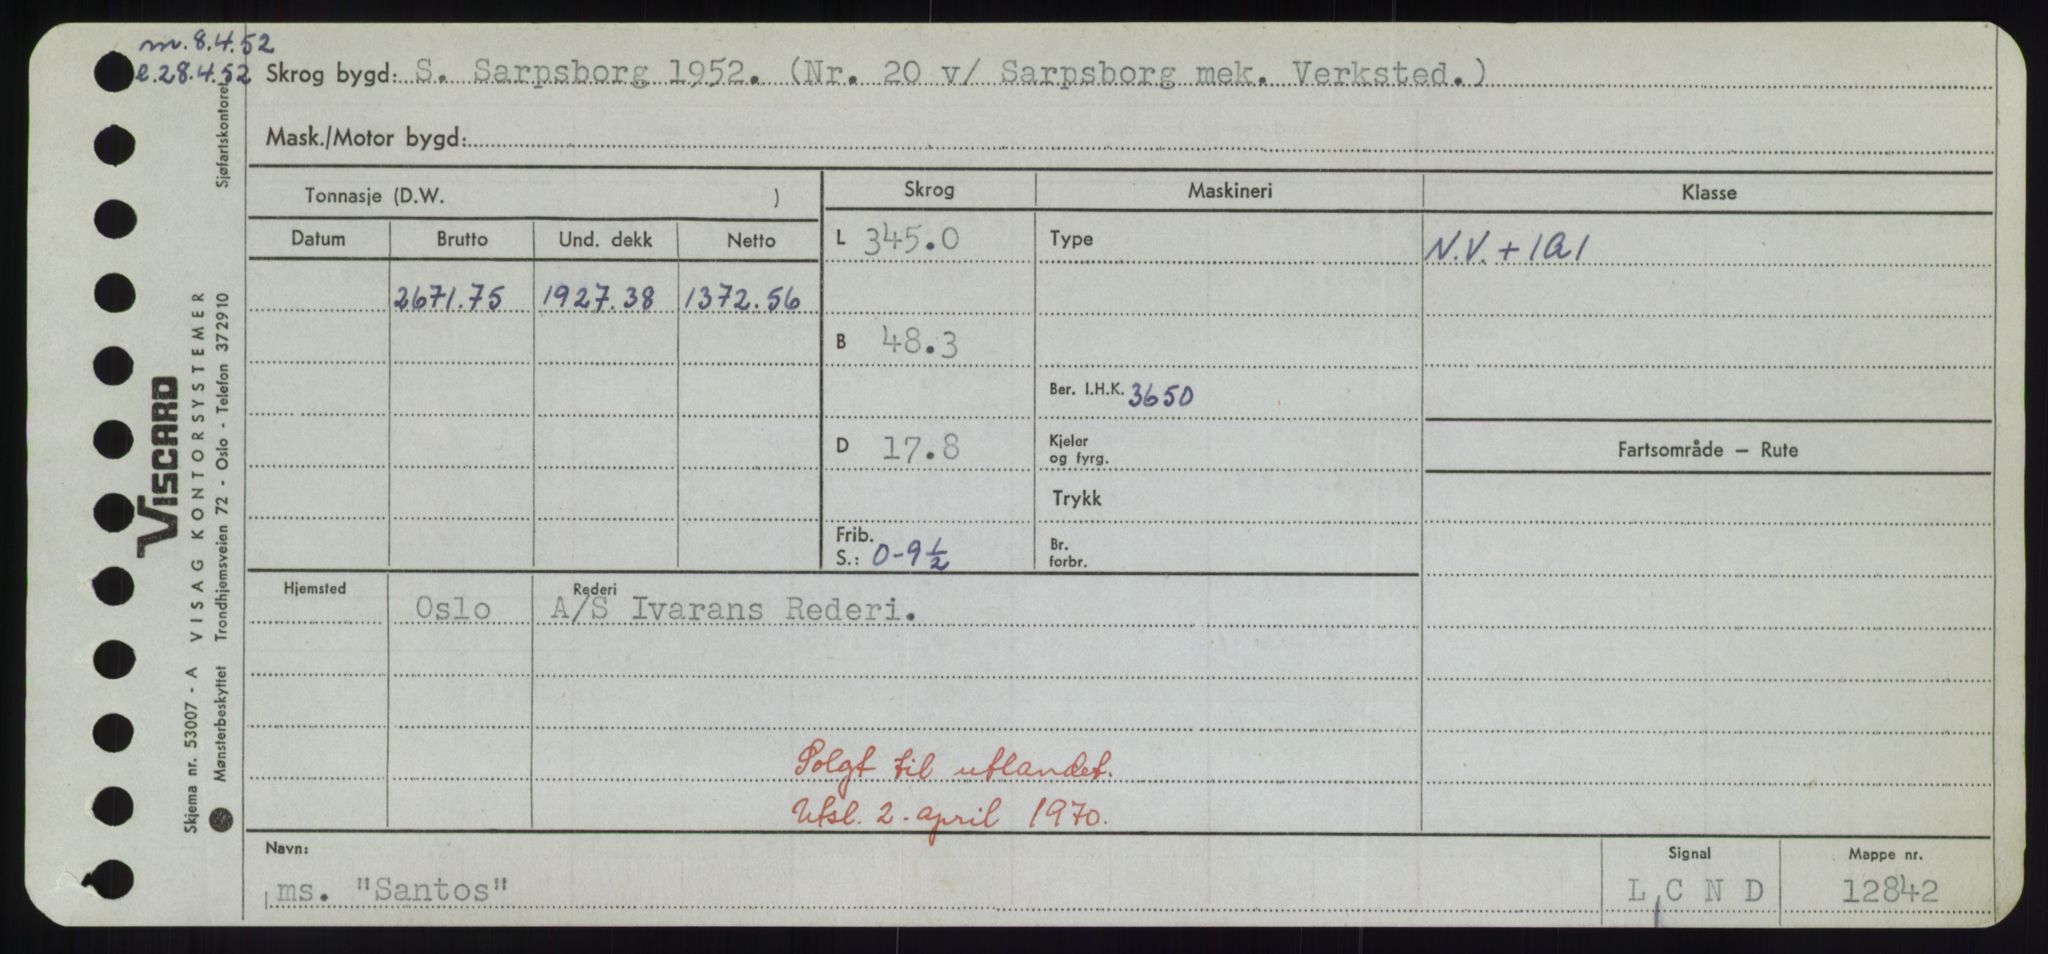 m. 8.4.52
l. 28.4.52
Skrog bygd: S. Sarpsborg 1952. (Nr. 20 v/ Sarpsborg mek. Verksted.)
Mask./Motor bygd:
Tonnasje (D.W. )
Skrog
Maskineri
Klasse
Datum
Brutto
Und. dekk
Netto
L 345.0
Type
N.V. + 1A1
2671.75
1927.38
1372.56
B 48.3
Ber. I.H.K. 3650
D 17.8
Kjeler
og fyrg.
Fartsområde — Rute
Trykk
Frib.
S.: 0-9½
Br.
forbr.
Hjemsted
Rederi
Oslo
A/S Ivarans Rederi.
Solgt til utlandet.
Utsl. 2. april 1970.
Navn:
ms. "Santos"
Signal
L C N D
Mappe nr.
12842
Skjema nr. 53007 - A VISAG KONTORSYSTEMER
VISCARD
Mønsterbeskyttet Trondhjemsveien 72 - Oslo - Telefon 372910
Sjøfartskontoret